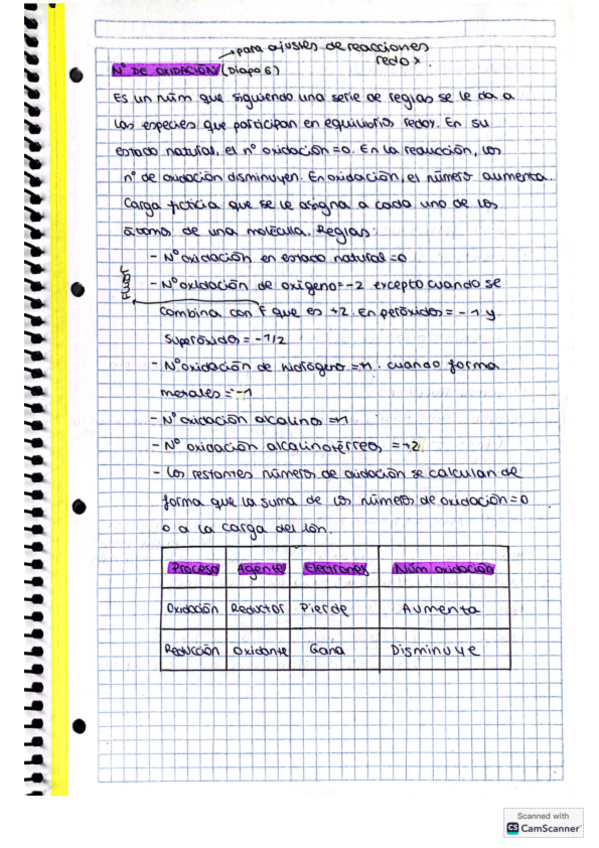 → para ajustes de reacciones
redox.
Nº DE OXIDACIÓN (Diapo 6)
Es un núm que siguiendo una serie de reglas se le da a
las especies que participan en equilibrios redox. En su
estado natural, el nº oxidación = 0. En la reducción, los
nº de oxidación disminuyen. En oxidación, el número aumenta.
Carga ficticia que se le asigna a cada uno de los
átomos de una molécula. Reglas:
- Nº oxidación en estado natural = 0
- Nº oxidación de oxígeno = -2 excepto cuando se
combina con F que es +2. En peróxidos = -1 y
Superóxido = -1/2
- Nº oxidación de hidrógeno = +1. cuando forma
metales = -1
- Nº oxidación alcalino = +1
- Nº oxidación alcalinotérreos = +2
- Los restantes números de oxidación se calculan de
forma que la suma de los números de oxidación = 0
o a la carga del ión.
Proceso Agente Electrones Núm oxidación
Oxidación Reductor Pierde Aumenta
Reducción Oxidante Gana Disminuye
Scanned with
CS CamScanner